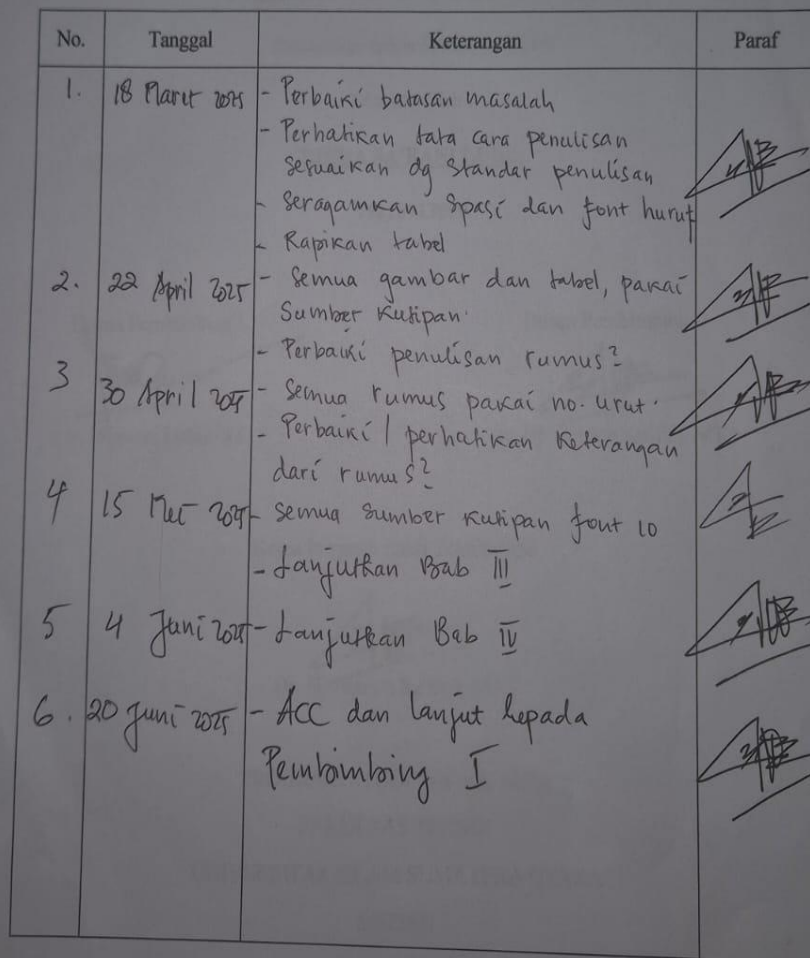 No. Tanggal Keterangan Paraf
1. 18 Maret 2025 - Perbaiki batasan masalah
- Perhatikan tata cara penulisan
sesuaikan dg standar penulisan
- Seragamkan spasi dan font huruf
- Rapikan tabel
2. 22 April 2025 - Semua gambar dan tabel, pakai
Sumber Kutipan.
- Perbaiki penulisan rumus?
3 30 April 2025 - Semua rumus pakai no. urut.
- Perbaiki / perhatikan Keterangan
dari rumus?
4 15 Mei 2025 - Semua sumber kutipan font 10
- Lanjutkan Bab III
5 4 Juni 2025 - Lanjutkan Bab IV
6. 20 Juni 2025 - ACC dan lanjut kepada
Pembimbing I